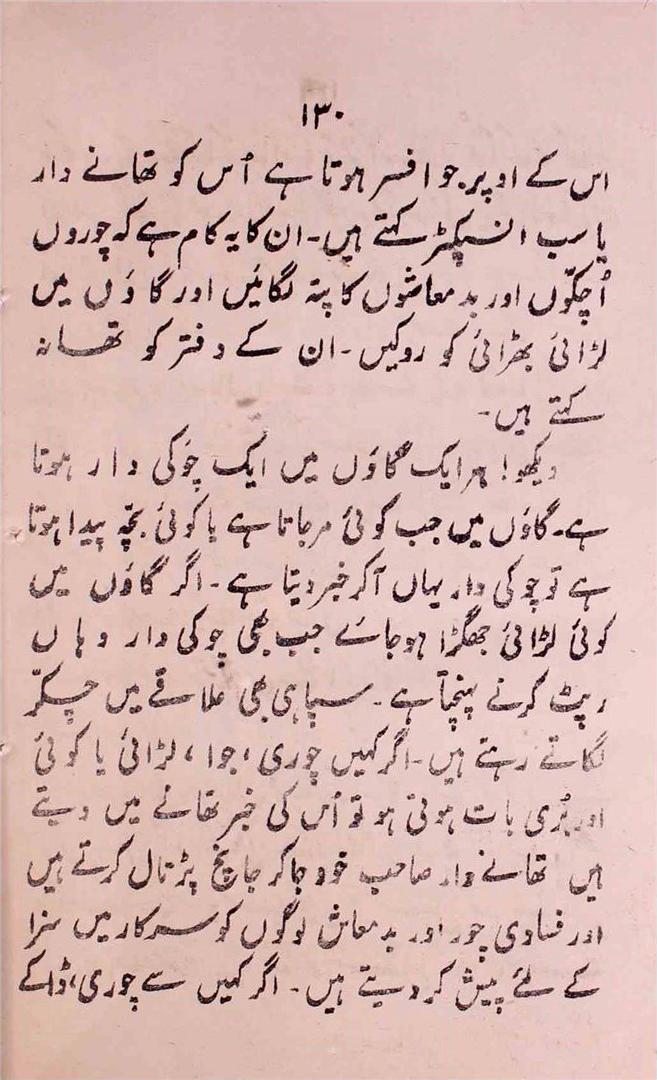 ۱۳۰
اس کے اوپر جو افسر ہوتا ہے اُس کو تھانے دار
یا سب انسپکٹر کہتے ہیں۔ ان کا یہ کام ہے کہ چوروں
اُچکّوں اور بدمعاشوں کا پتہ لگائیں اور گاؤں میں
لڑائی بھڑائی کو روکیں۔ ان کے دفتر کو تھانہ
کہتے ہیں۔
دیکھو! ہر ایک گاؤں میں ایک چوکی دار ہوتا
ہے۔ گاؤں میں جب کوئی مرجاتا ہے یا کوئی بچّہ پیدا ہوتا
ہے تو چوکی دار یہاں آکر خبر دیتا ہے۔ اگر گاؤں میں
کوئی لڑائی جھگڑا ہوجائے جب بھی چوکی دار وہاں
رپٹ کرنے پہنچتا ہے۔ سپاہی بھی علاقے میں چکّر
لگاتے رہتے ہیں۔ اگر کہیں چوری، جوا، لڑائی یا کوئی
اور بُری بات ہوتی ہو تو اُس کی خبر تھانے میں دیتے
ہیں تھانے دار صاحب خود جاکر جانچ پڑتال کرتے ہیں
اور فسادی چور اور بدمعاش لوگوں کو سرکار میں سزا
کے لئے پیش کر دیتے ہیں۔ اگر کہیں سے چوری، ڈاکے